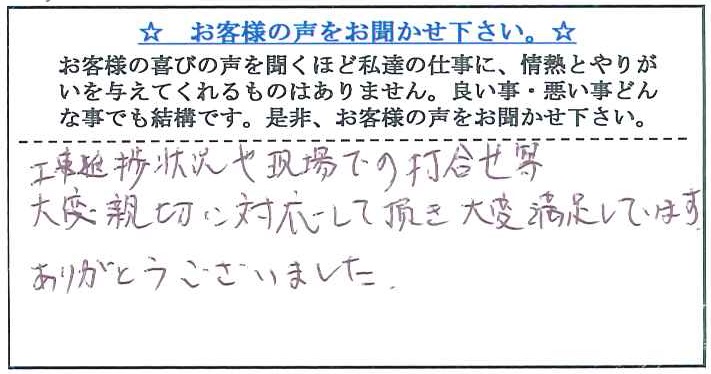 ☆　お客様の声をお聞かせ下さい。☆
お客様の喜びの声を聞くほど私達の仕事に、情熱とやりが
いを与えてくれるものはありません。良い事・悪い事どん
な事でも結構です。是非、お客様の声をお聞かせ下さい。
工事進捗状況や現場での打合せ等
大変親切に対応して頂き大変満足しています
ありがとうございました.